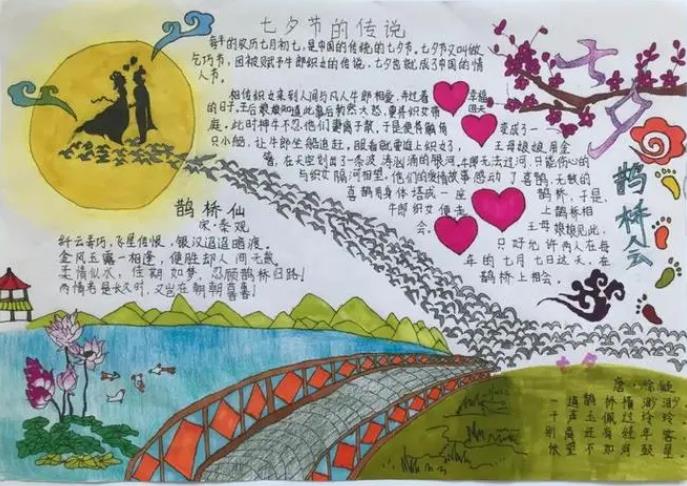 七夕节的传说
每年的农历七月初七,是中国的传统的七夕节,七夕节又叫做
乞巧节,因被赋予牛郎织女的传说,七夕也就成了中国的情
人节。
相传织女来到人间与凡人牛郎相爱,并过着幸福
的日子,王后娘娘知道此事后勃然大怒,要将织女带回天
庭,此时神牛不忍他们妻离子散,于是便将触角变成了一
只小船,让牛郎坐船追赶,眼看就要追上织女了,王母娘娘用金
簪,在天空划出了一条波涛汹涌的银河,牛郎无法过河,只能伤心的
与织女隔河相望,他们的爱情故事感动了喜鹊,无数的
喜鹊用身体搭成一座鹊桥,于是,
牛郎织女便走上鹊桥相
会。王母娘娘见此,
只好允许两人在每
年的七月七日这天,在
鹊桥上相会。
七夕
鹊桥会
鹊桥仙
宋·秦观
纤云弄巧,飞星传恨,银汉迢迢暗渡。
金风玉露一相逢,便胜却人间无数
柔情似水,佳期如梦,忍顾鹊桥归路!
两情若是长久时,又岂在朝朝暮暮!
七夕
唐·徐凝
一道鹊桥情渺渺
千声玉佩过玲玲
别离还有经年客
怅望不如河鼓星